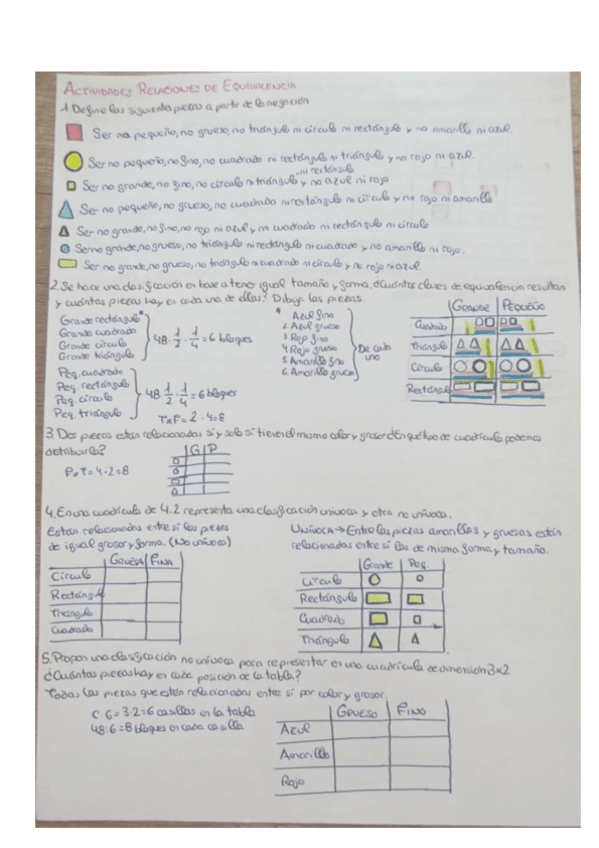 ACTIVIDADES RELACIONES DE EQUIVALENCIA
1. Define las siguientes piezas a partir de la negación
Ser no pequeño, no grueso, no triángulo ni círculo ni rectángulo y no amarillo ni azul.
Ser no pequeño, no fino, no cuadrado ni rectángulo ni triángulo y no rojo ni azul.
ni rectángulo
Ser no grande, no fino, no círculo ni triángulo y no azul ni rojo
Ser no pequeño, no grueso, no cuadrado ni rectángulo ni círculo y no rojo ni amarillo
Ser no grande, no fino, no rojo ni azul y ni cuadrado ni rectángulo ni círculo
Ser no grande, no grueso, no triángulo ni rectángulo ni cuadrado y no amarillo ni rojo.
Ser no grande, no grueso, no triángulo ni cuadrado ni círculo y no rojo ni azul.
2. Se hace una clasificación en base a tener igual tamaño y forma. ¿Cuántas clases de equivalencia resultan
y cuántas piezas hay en cada una de ellas? Dibuja las piezas.
Grande rectángulo *
Grande cuadrado
Grande círculo
Grande triángulo
48 · 1/2 · 1/4 = 6 bloques
Peq. cuadrado
Peq. rectángulo
Peq. círculo
Peq. triángulo
48 · 1/2 · 1/4 = 6 bloques
TxF = 2 · 4 = 8
* 1. Azul fino
2. Azul grueso
3. Rojo fino
4. Rojo grueso
5. Amarillo fino
6. Amarillo grueso
De cada
uno
GRANDE PEQUEÑO
Cuadrado
Triángulo
Círculo
Rectángulo
3. Dos piezas están relacionadas si y solo si tienen el mismo color y grosor ¿En qué tipo de cuadrícula podemos
distribuirla?
G P
PxT = 4 · 2 = 8
4. En una cuadrícula de 4·2 representa una clasificación unívoca y otra no unívoca.
Están relacionadas entre sí las piezas
de igual grosor y forma. (No unívoca)
GRUESA FINA
Círculo
Rectángulo
Triángulo
Cuadrado
UNÍVOCA → Entre las piezas amarillas y gruesas están
relacionados entre sí las de misma forma y tamaño.
Grande Peq.
Círculo
Rectángulo
Cuadrado
Triángulo
5. Propon una clasificación no unívoca para representar en una cuadrícula de dimensión 3x2
¿Cuántas piezas hay en cada posición de la tabla?
Todas las piezas que están relacionadas entre sí por color y grosor.
C·G = 3·2 = 6 casillas en la tabla
48:6 = 8 bloques en cada casilla
GRUESO FINO
Azul
Amarillo
Rojo